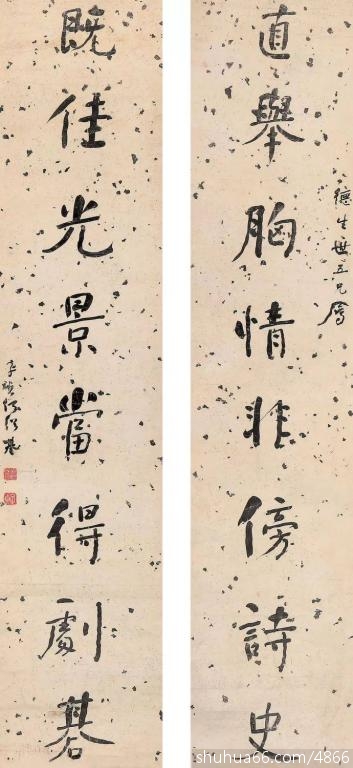 直舉胸情非傍詩史
德生世五兄屬
既佳光景當得劇棊
子貞何紹基
shuhua66.com/4866